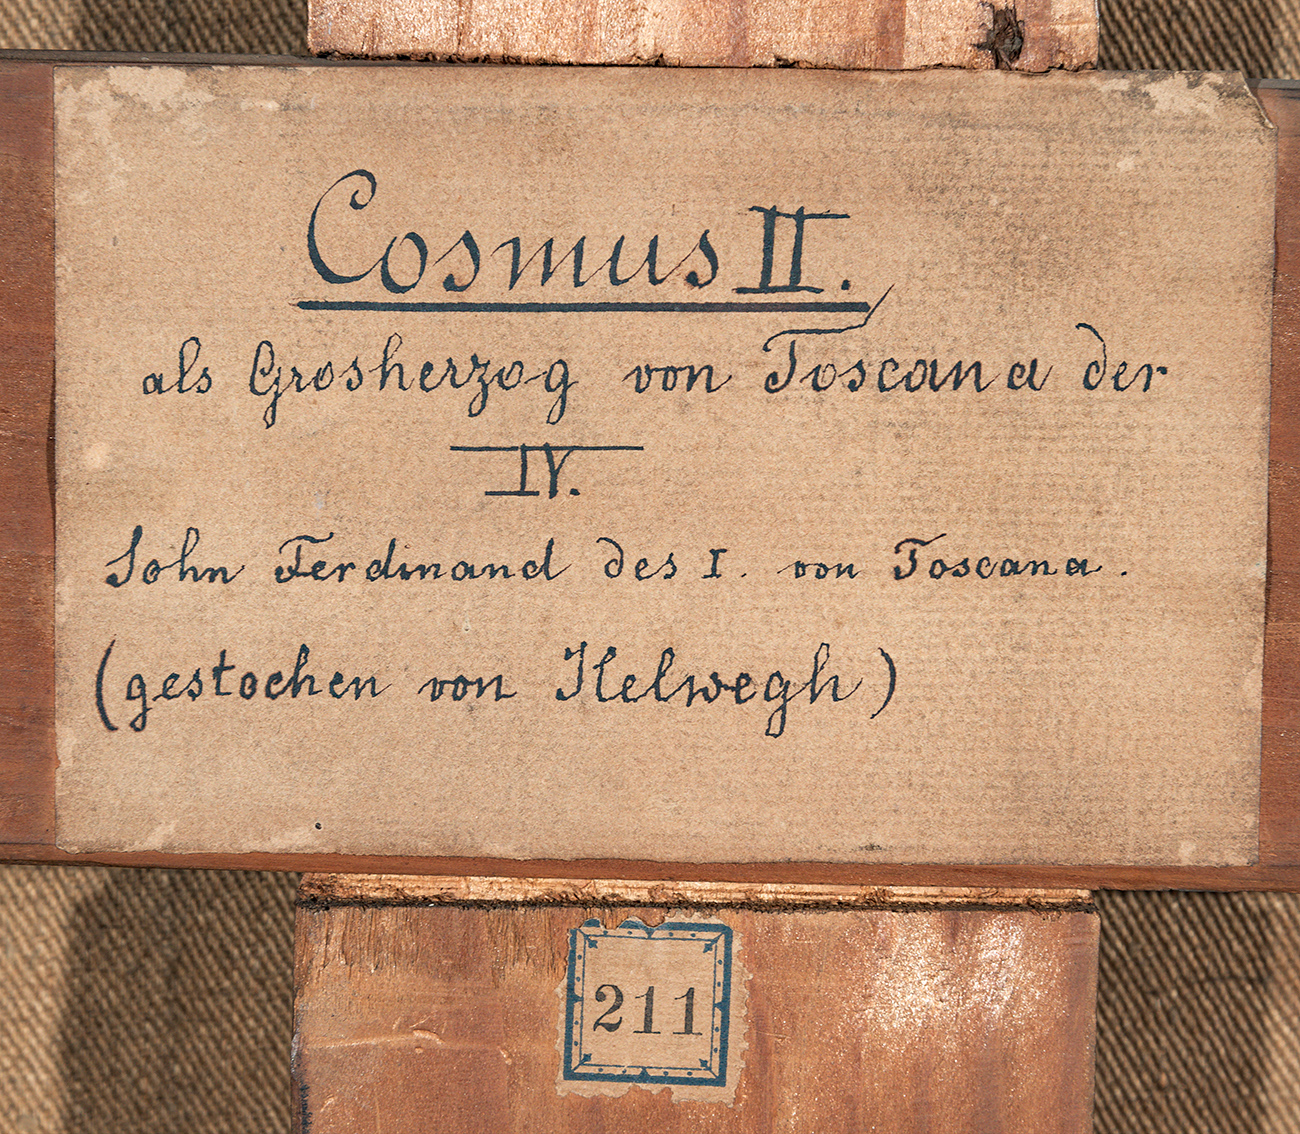 Cosmus II.
als Grosherzog von Toscana der
IV.
Sohn Ferdinand des I. von Toscana.
(gestochen von Helwegh)
211